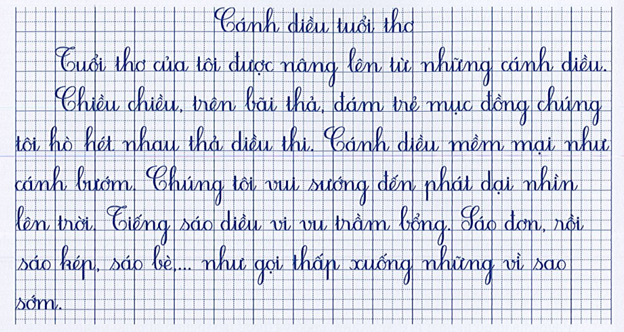 Cánh diều tuổi thơ
Tuổi thơ của tôi được nâng lên từ những cánh diều.
Chiều chiều, trên bãi thả, đám trẻ mục đồng chúng
tôi hò hét nhau thả diều thi. Cánh diều mềm mại như
cánh bướm. Chúng tôi vui sướng đến phát dại nhìn
lên trời. Tiếng sáo diều vi vu trầm bổng. Sáo đơn, rồi
sáo kép, sáo bè,... như gọi thấp xuống những vì sao
sớm.